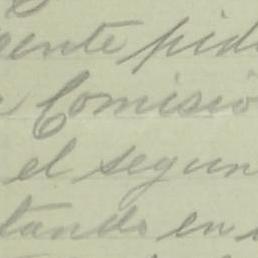 ente pid
Comisio
el segun
tando en